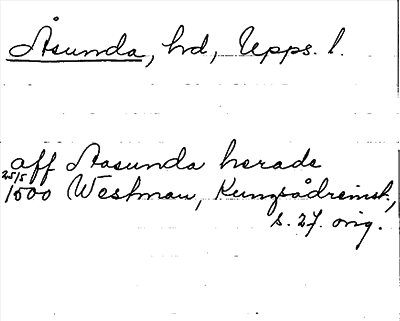 Åsunda, hd, Upps. l.
aff Aasunda herade
25/5
1500 Westman, Kungsådreinst.,
s. 27. orig.